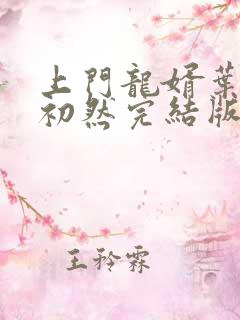 上門龍婿葉
初然完結版
王矜霖